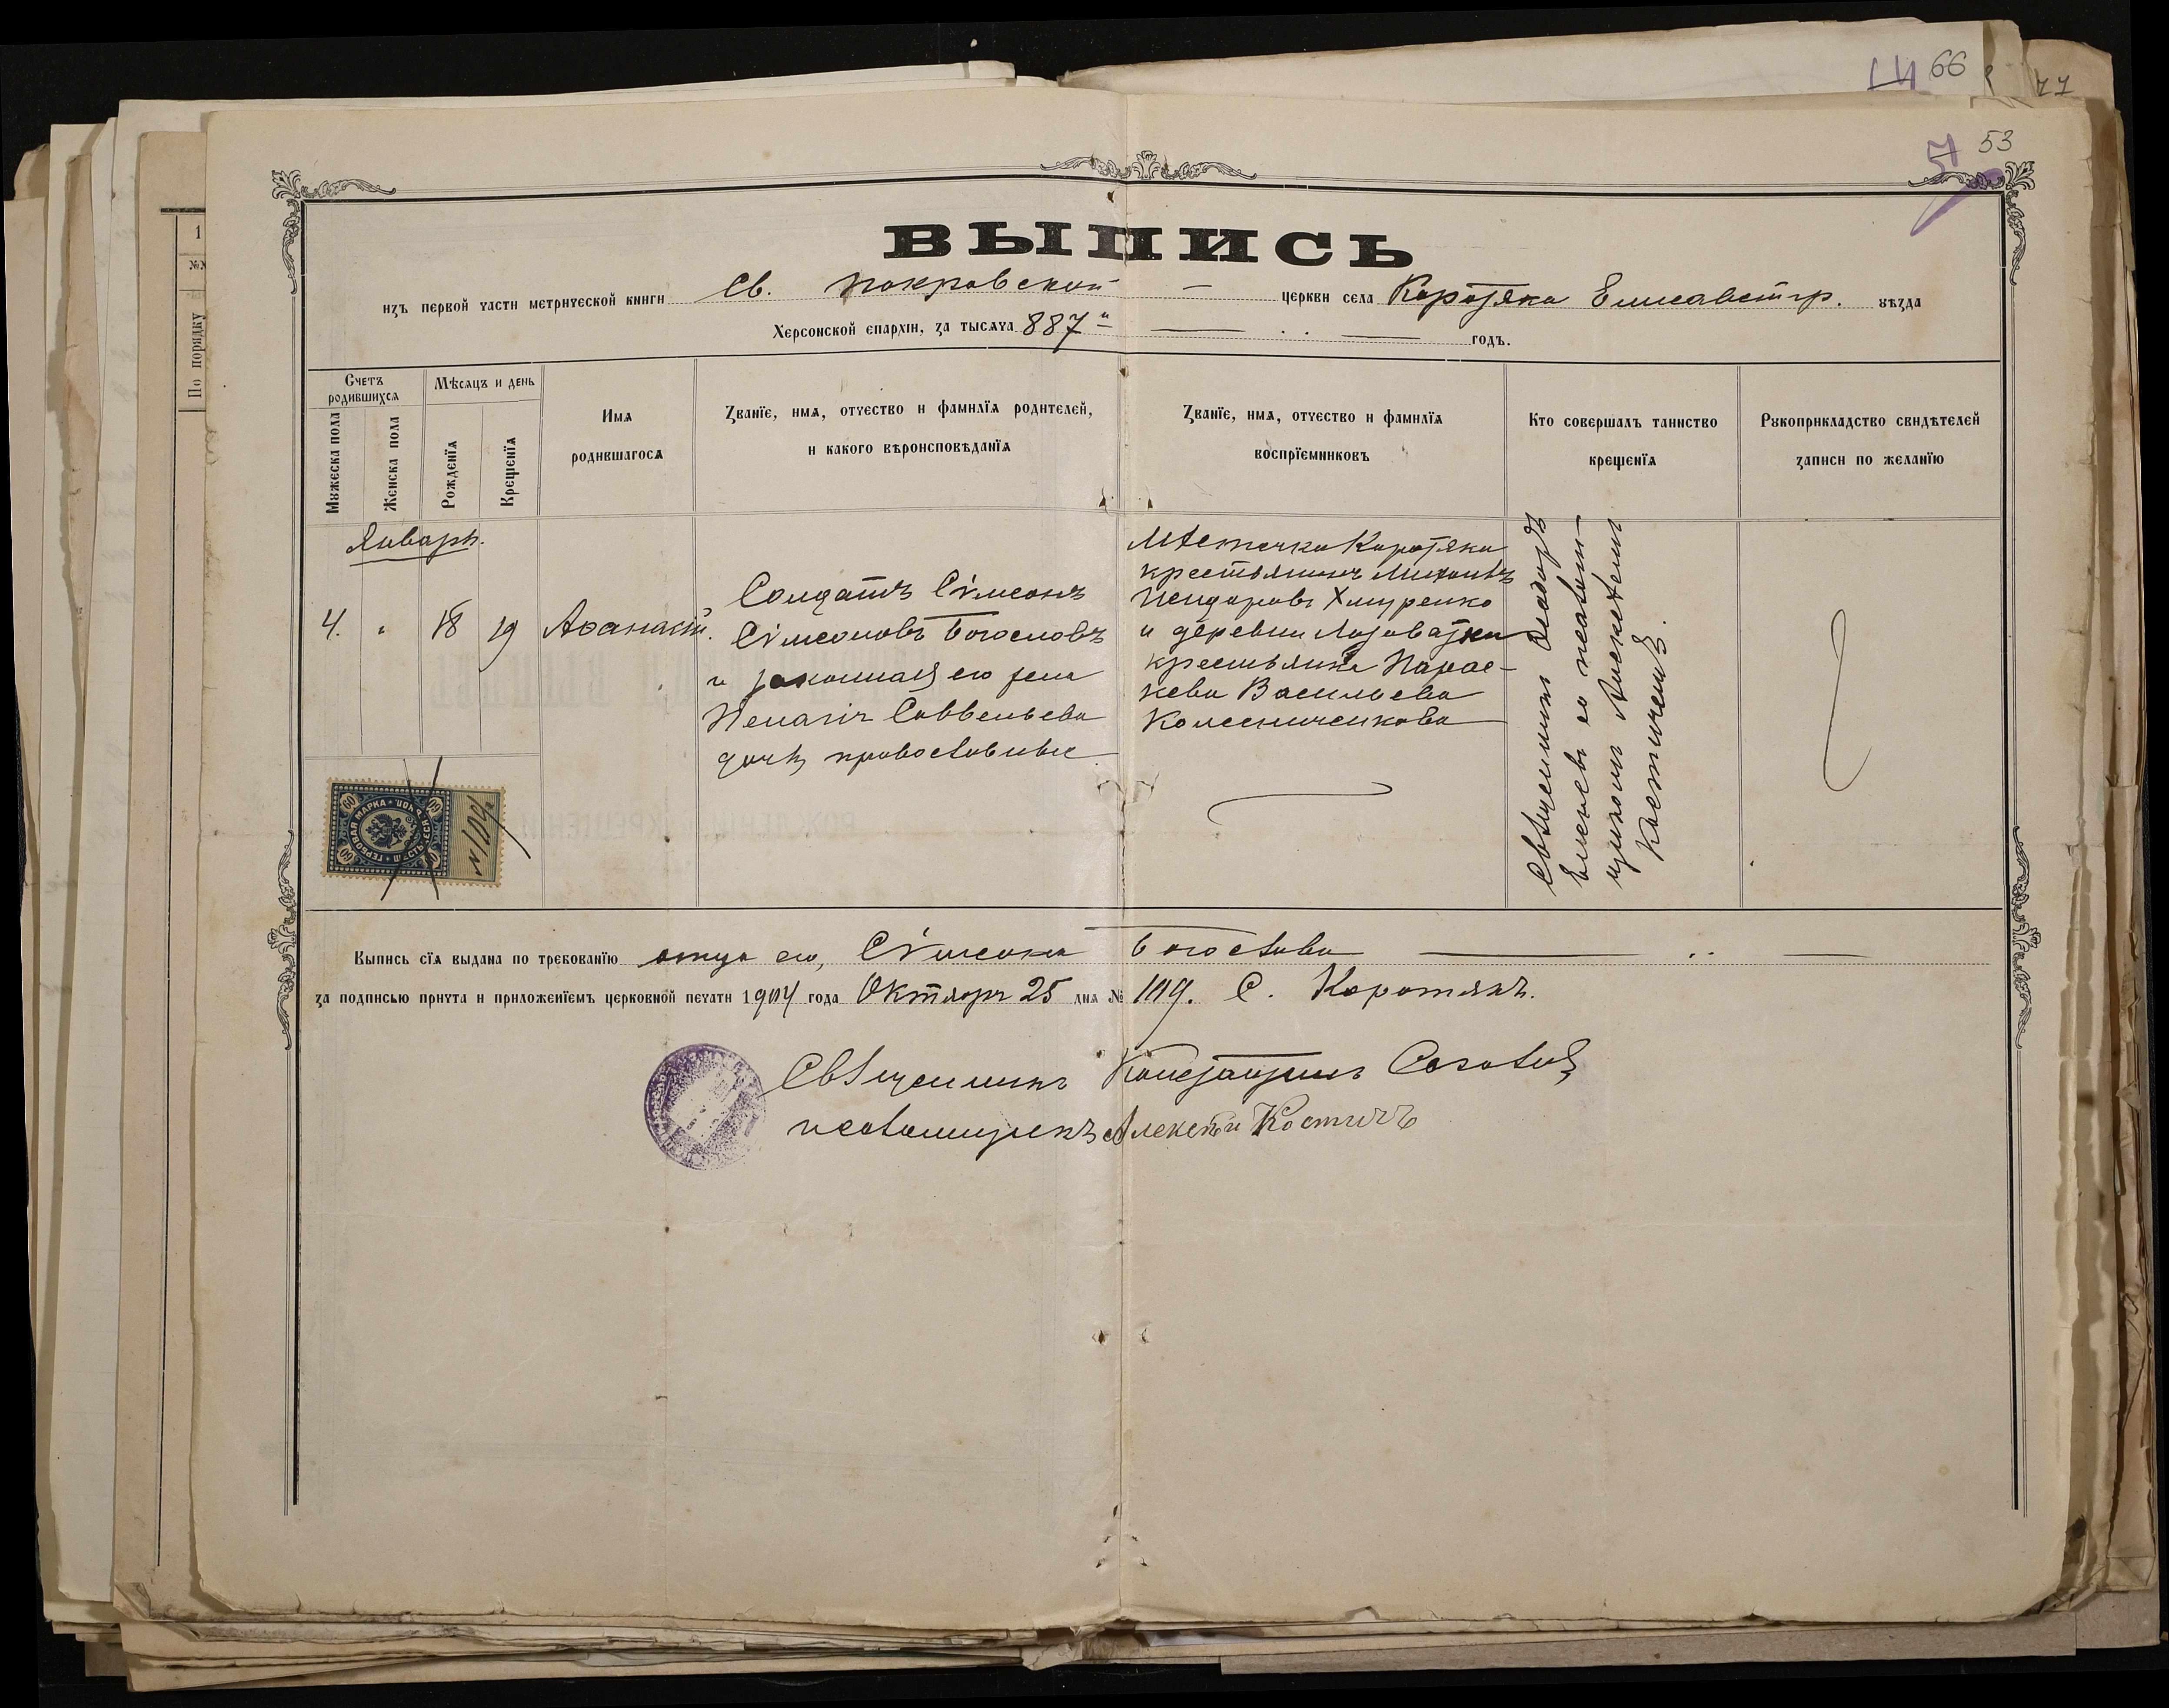 66
77
53
ВЫПИСЬ
изъ первой части метрической книги Св. Покровской церкви села Коротяка Елисаветгр. уѣзда
Херсонской епархіи, за тысяча 887й годъ.
Счетъ родившихся
Мѣсяцъ и день
Мужеска пола
Женска пола
Рожденія
Крещенія
Имя
родившагося
Званіе, имя, отчество и фамилія родителей,
и какого вѣроисповѣданія
Званіе, имя, отчество и фамилія
воспріемниковъ
Кто совершалъ таинство
крещенія
Рукоприкладство свидѣтелей
записи по желанію
По порядку
Январь.
4. " 18 19 Аѳанасій.
Солдатъ Сѵмеонъ
Сѵмеоновъ Богословъ
и законная его жена
Пелагія Савельева
дочь, православные
Мѣстечка Коротяка
крестьянинъ
Хмуренко
и деревни Лозоватки
крестьянка Парас-
кева Васильева
Колесниченкова
Священникъ
съ псаломщикомъ Алексѣемъ
Костичемъ.
ГЕРБОВАЯ МАРКА
60
№109
Выпись сія выдана по требованію отца его, Сѵмеона Богослова
за подписью причта и приложеніемъ церковной печати 1904 года Октября 25 дня № 109. С. Коротякъ.
Священникъ Константинъ
псаломщикъ Алексѣй Костичъ